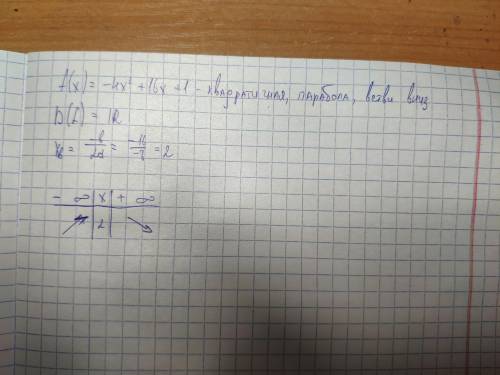 f(x) = -4x² + 16x + 1 - квадратичная, парабола, ветви вниз
D(f) = R
x₆ = -b/2a = -16/-8 = 2
- ∞ | x | + ∞
↗ | 2 | ↘